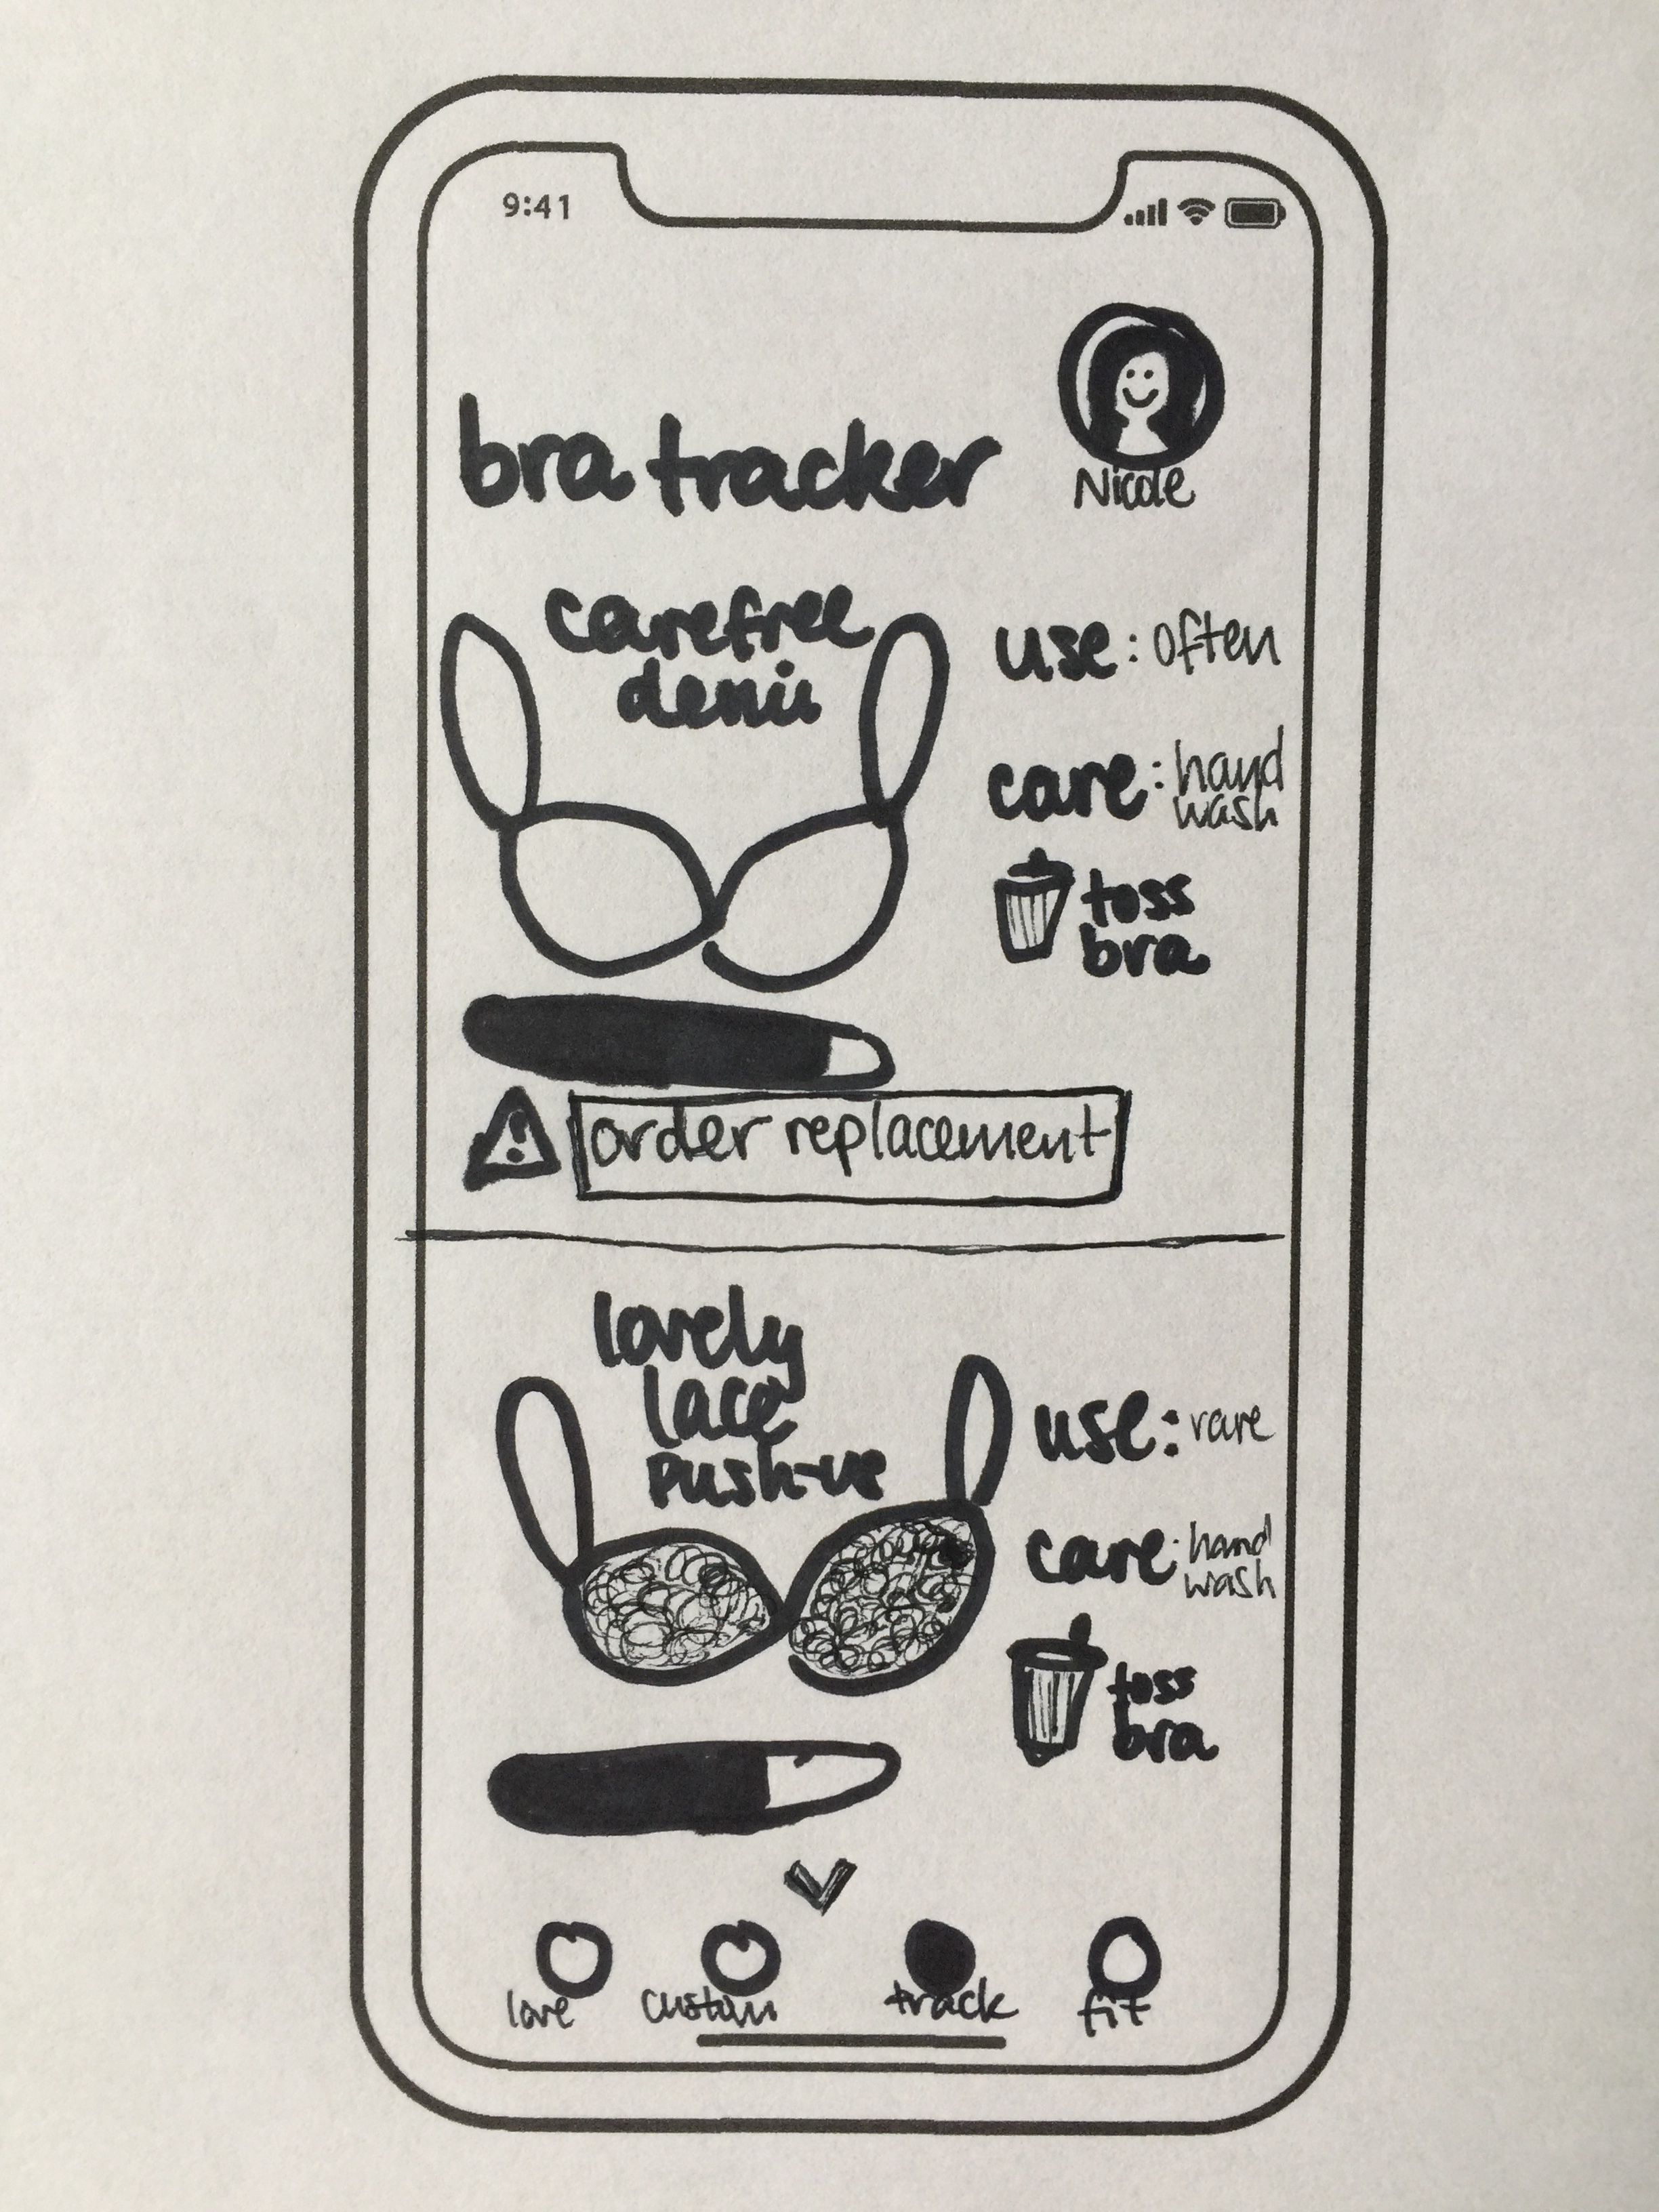 9:41
Nicole
bra tracker
carefree
demi
use: often
care: hand
wash
toss
bra
order replacement
lovely
lace
push-up
use: rare
care: hand
wash
toss
bra
love
custom
track
fit